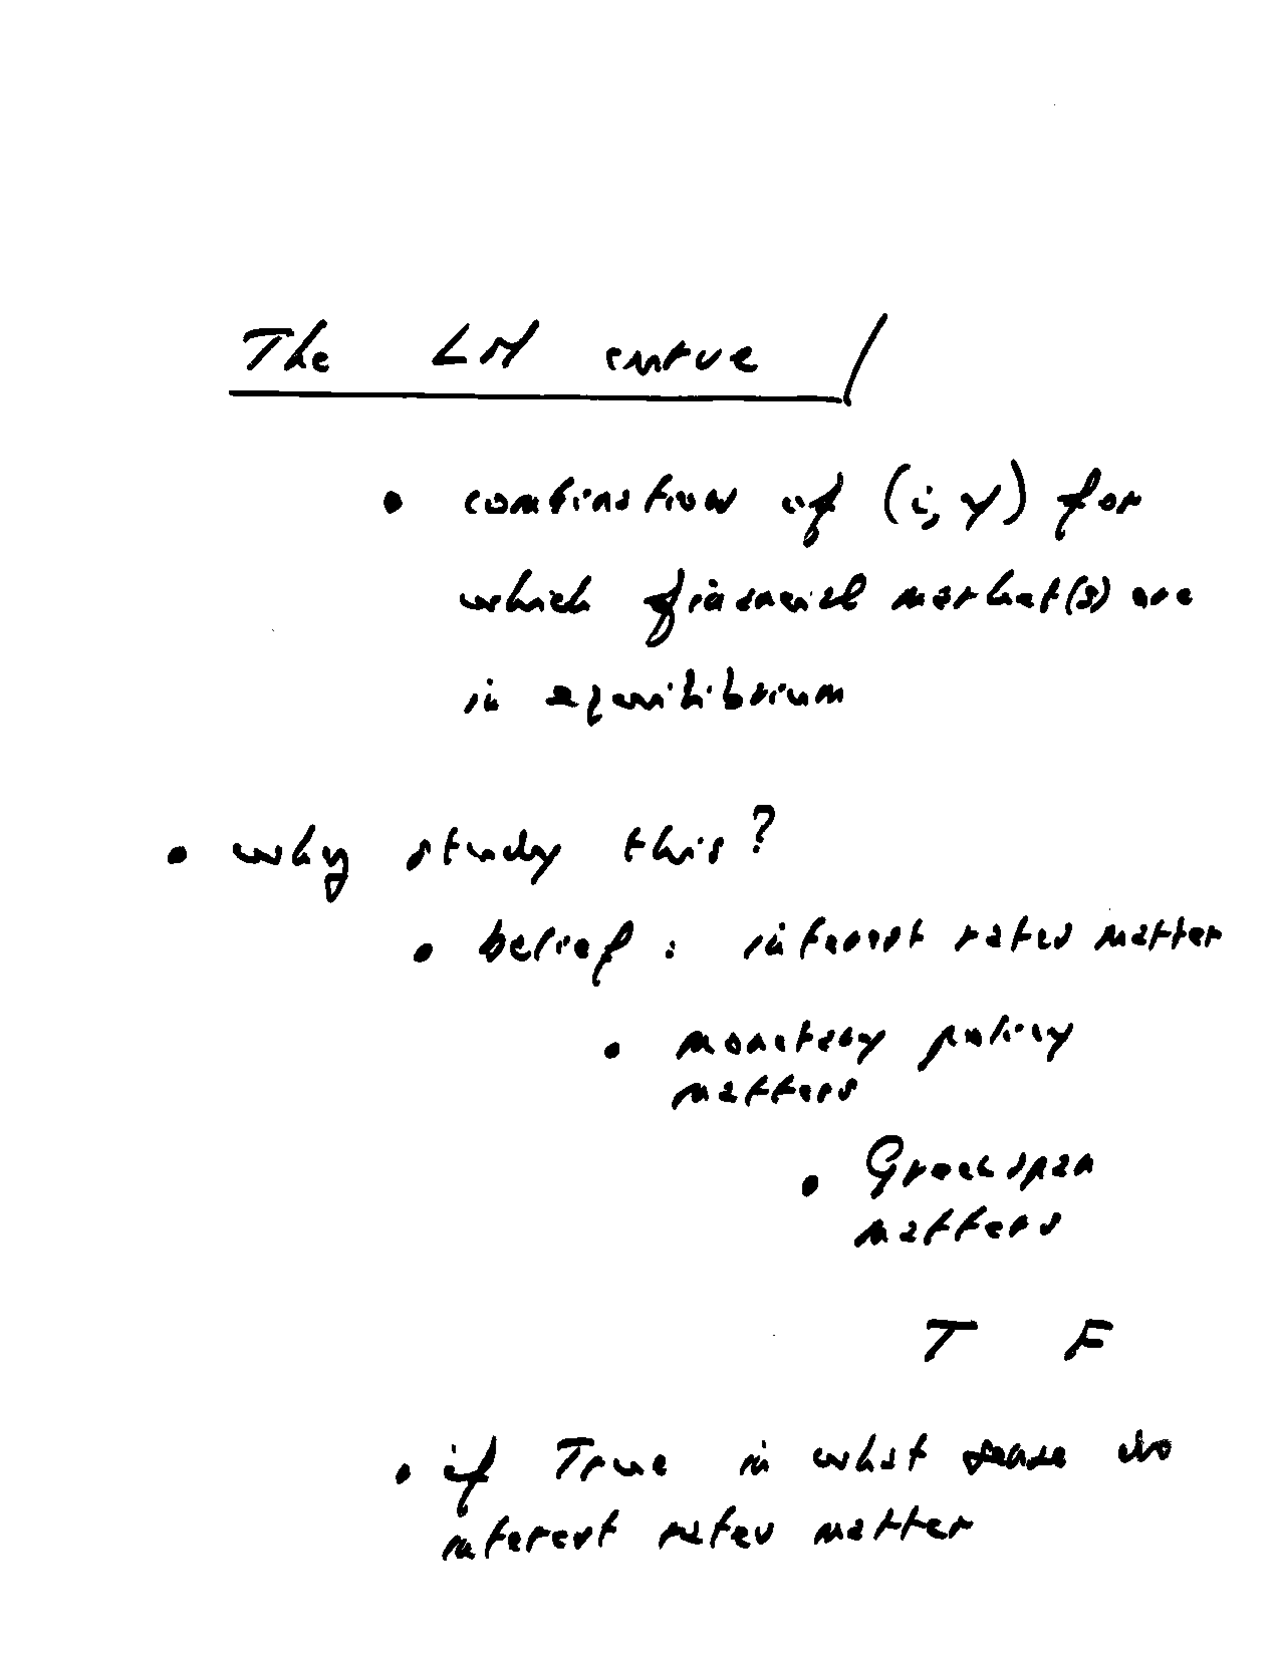 The LM curve
• combination of (i, Y) for
which financial market(s) are
in equilibrium
• why study this?
• belief: interest rates matter
• monetary policy
matters
• Greenspan
matters
T F
• if True in what sense do
interest rates matter